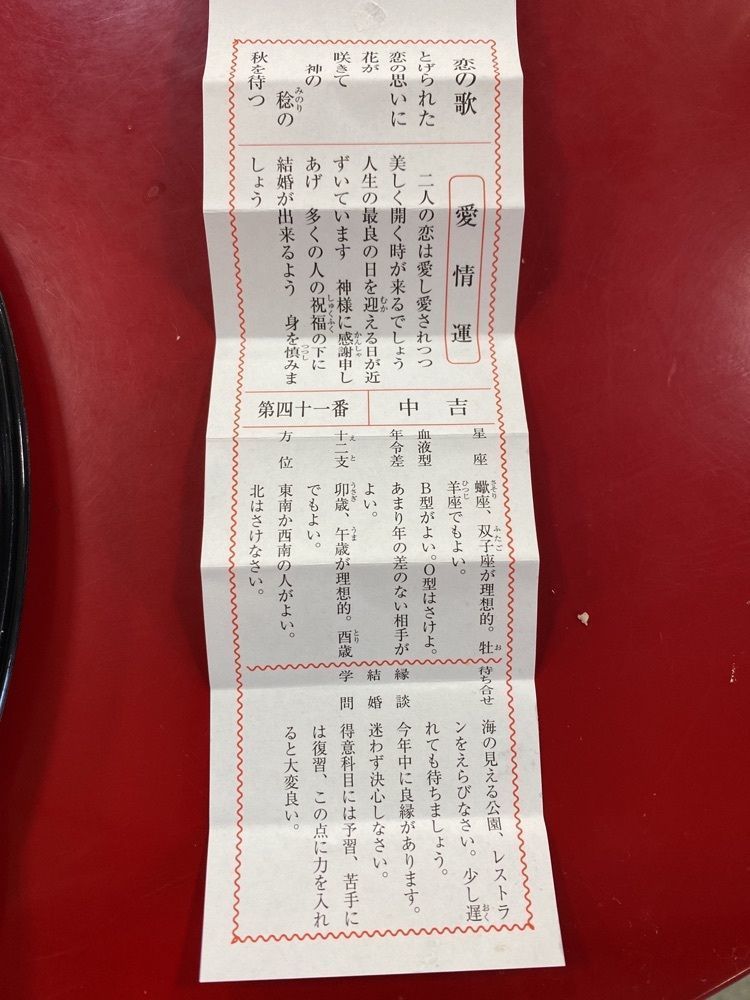 恋の歌
とげられた
恋の思いに
花が
咲きて
神の
稔の
秋を待つ
愛情運
二人の恋は愛し愛されつつ
美しく開く時が来るでしょう
人生の最良の日を迎える日が近
ずいています 神様に感謝申し
あげ 多くの人の祝福の下に
結婚が出来るよう 身を慎みま
しょう
中吉
第四十一番
星座 蠍座、双子座が理想的。牡
羊座でもよい。
血液型 B型がよい。O型はさけよ。
年令差 あまり年の差のない相手が
よい。
十二支 卯歳、午歳が理想的。酉歳
でもよい。
方位 東南か西南の人がよい。
北はさけなさい。
待ち合せ 海の見える公園、レストラ
ンをえらびなさい。少し遅
れても待ちましょう。
縁談 今年中に良縁があります。
結婚 迷わず決心しなさい。
学問 得意科目には予習、苦手に
は復習、この点に力を入れ
ると大変良い。